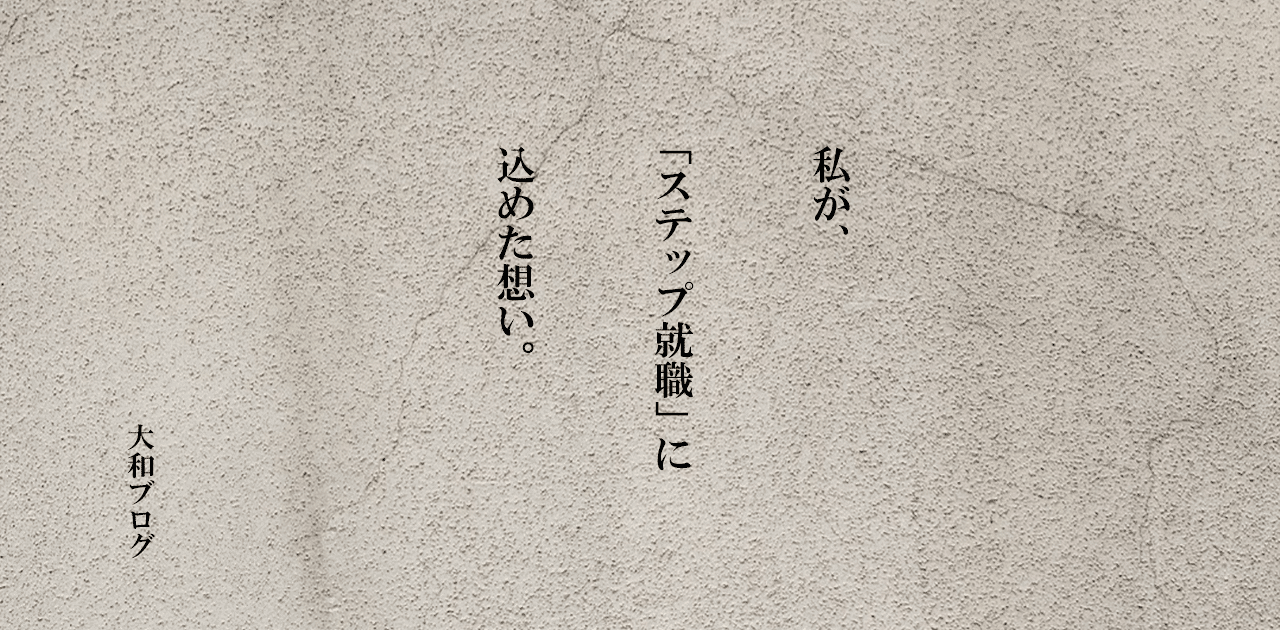 私が、
「ステップ就職」に
込めた想い。
大和ブログ